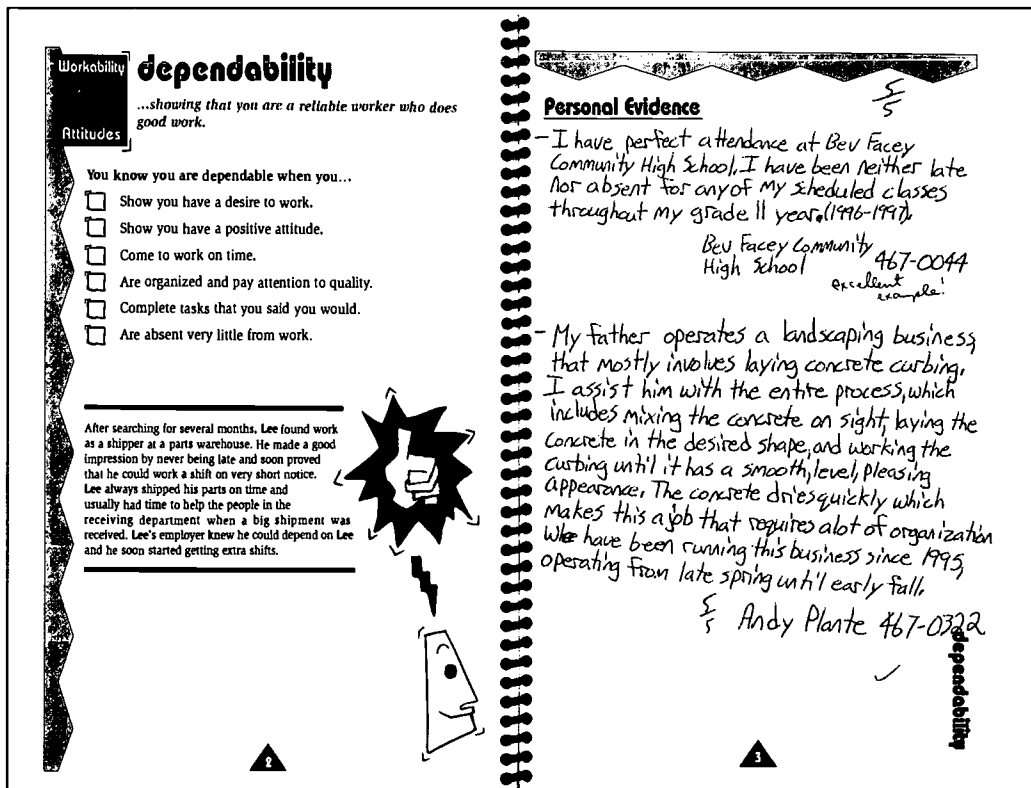 Workability
Attitudes
dependability
...showing that you are a reliable worker who does
good work.
You know you are dependable when you...
Show you have a desire to work.
Show you have a positive attitude.
Come to work on time.
Are organized and pay attention to quality.
Complete tasks that you said you would.
Are absent very little from work.
After searching for several months, Lee found work
as a shipper at a parts warehouse. He made a good
impression by never being late and soon proved
that he could work a shift on very short notice.
Lee always shipped his parts on time and
usually had time to help the people in the
receiving department when a big shipment was
received. Lee's employer knew he could depend on Lee
and he soon started getting extra shifts.
2
5/5
Personal Evidence
- I have perfect attendance at Bev Facey
Community High School. I have been neither late
nor absent for any of my scheduled classes
throughout my grade 11 year. (1996-1997).
Bev Facey Community
High School 467-0044
excellent
example!
- My father operates a landscaping business,
that mostly involves laying concrete curbing.
I assist him with the entire process, which
includes mixing the concrete on sight, laying the
concrete in the desired shape, and working the
curbing until it has a smooth, level, pleasing
appearance. The concrete dries quickly which
makes this a job that requires alot of organization
We have been running this business since 1995,
operating from late spring until early fall.
5/5 Andy Plante 467-0322
dependability
3